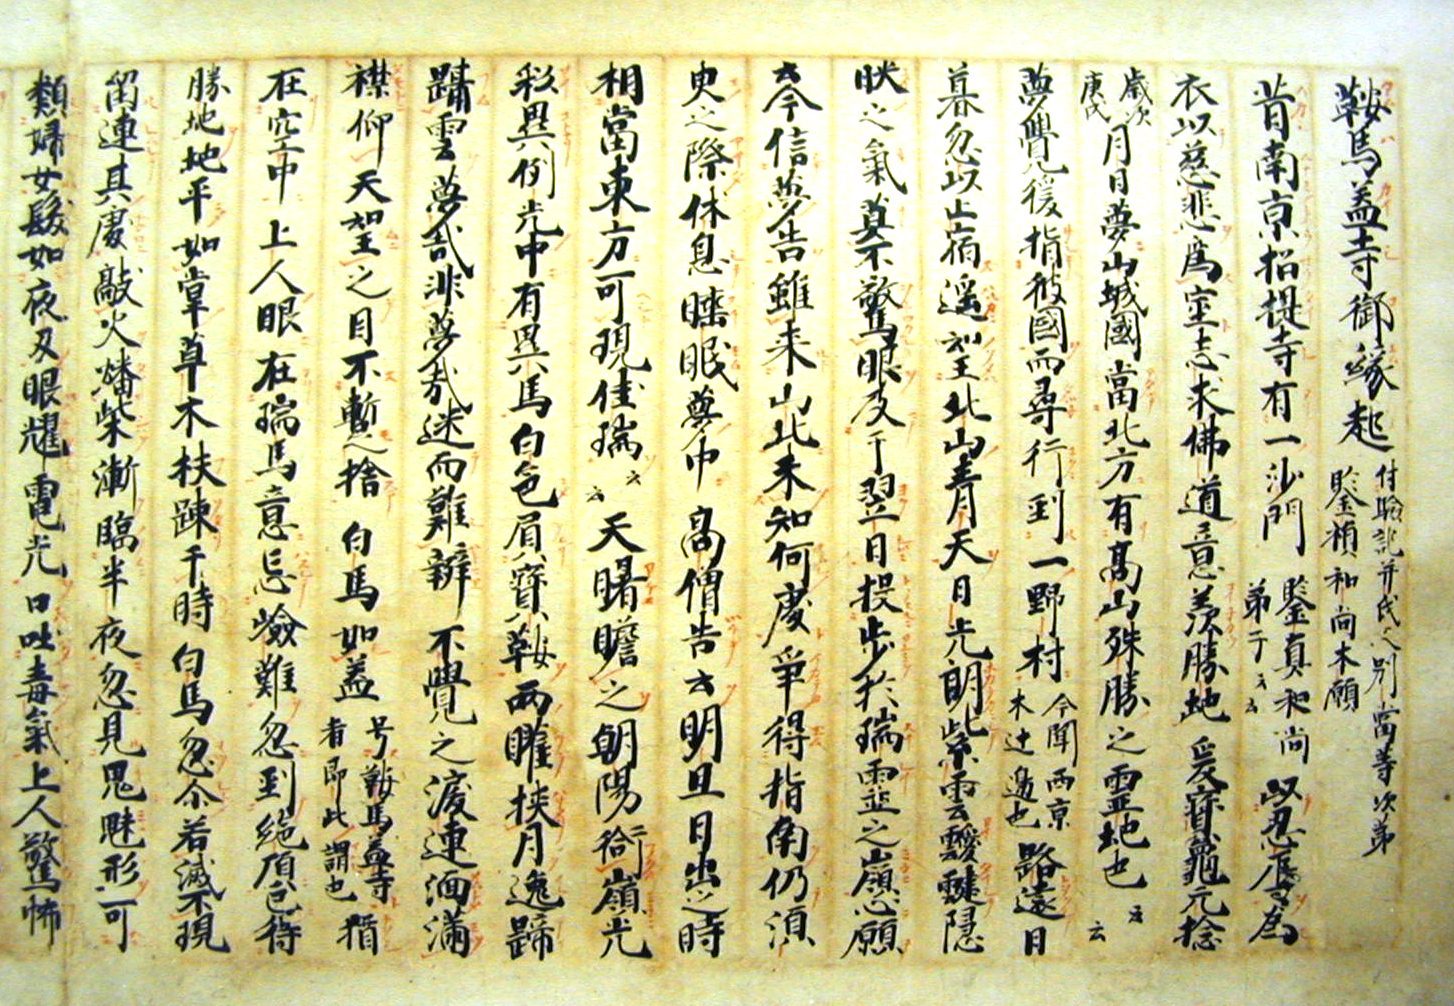 鞍馬蓋寺御縁起 付驗記并氏人別當等次第 鑒禎和尚本願
昔南京招提寺有一沙門 鑒真和尚弟子云々 以忍辱為
衣以慈悲為室志求佛道意羨勝地爰寶龜元秊
歳次庚戌 月日夢山城國當北方有高山殊勝之霊地也云々
夢覺几後指彼國而尋行到一野村 今聞西京木辻邊也 路遠日
暮忽以止宿遥望北山青月天日光朗紫雲靉靆隠
映之氣莫不驚眼及于翌日投步於瑞霊之嶺心願
云今信夢告雖来山北未知何處争得指南仍須
臾之際休息睡眠夢中高僧告云明旦日出之時
相當東方可現佳瑞云々天曙瞻之朝陽衘嶺光
彩異例光中有異馬白色眉寶鞍両臃挟月逸蹄
躡雲夢哉非夢哉迷而難辨不覺之涙連洏滿
襟仰天如望之目不暫捨白馬如蓋 号鞍馬蓋寺者即此謂也 猶
在空中上人眼在瑞馬意忘嶮難忽到絶頂已得
勝地地平如掌草木扶踈于時白馬忽尒若滅不現
留連其處敲火燔柴漸臨半夜忽見鬼魅形可
類婦女髮如夜叉眼耀電光口吐毒氣上人驚怖